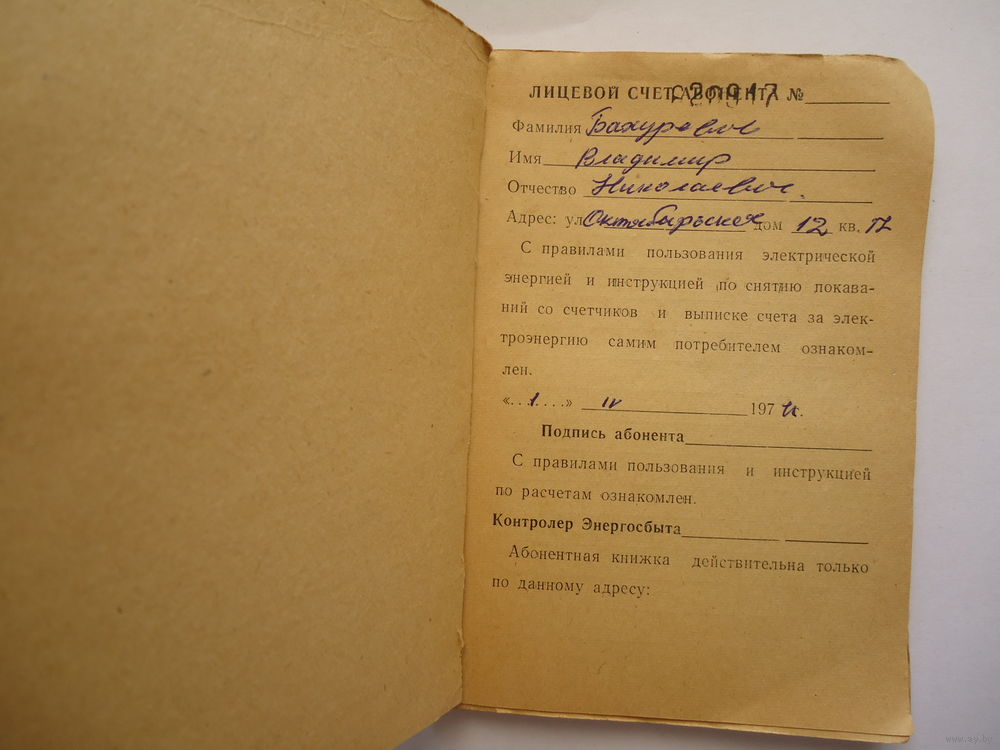 ЛИЦЕВОЙ СЧЕТ АБОНЕНТА №
Фамилия Бахуревич
Имя Владимир
Отчество Николаевич.
Адрес: ул. Октябрьская дом 12 кв.
С правилами пользования электрической
энергией и инструкцией по снятию показа-
ний со счетчиков и выписке счета за элек-
троэнергию самим потребителем ознаком-
лен.
«...1....» IV 197 г.
Подпись абонента
С правилами пользования и инструкцией
по расчетам ознакомлен.
Контролер Энергосбыта
Абонентная книжка действительна только
по данному адресу:
www.ay.by